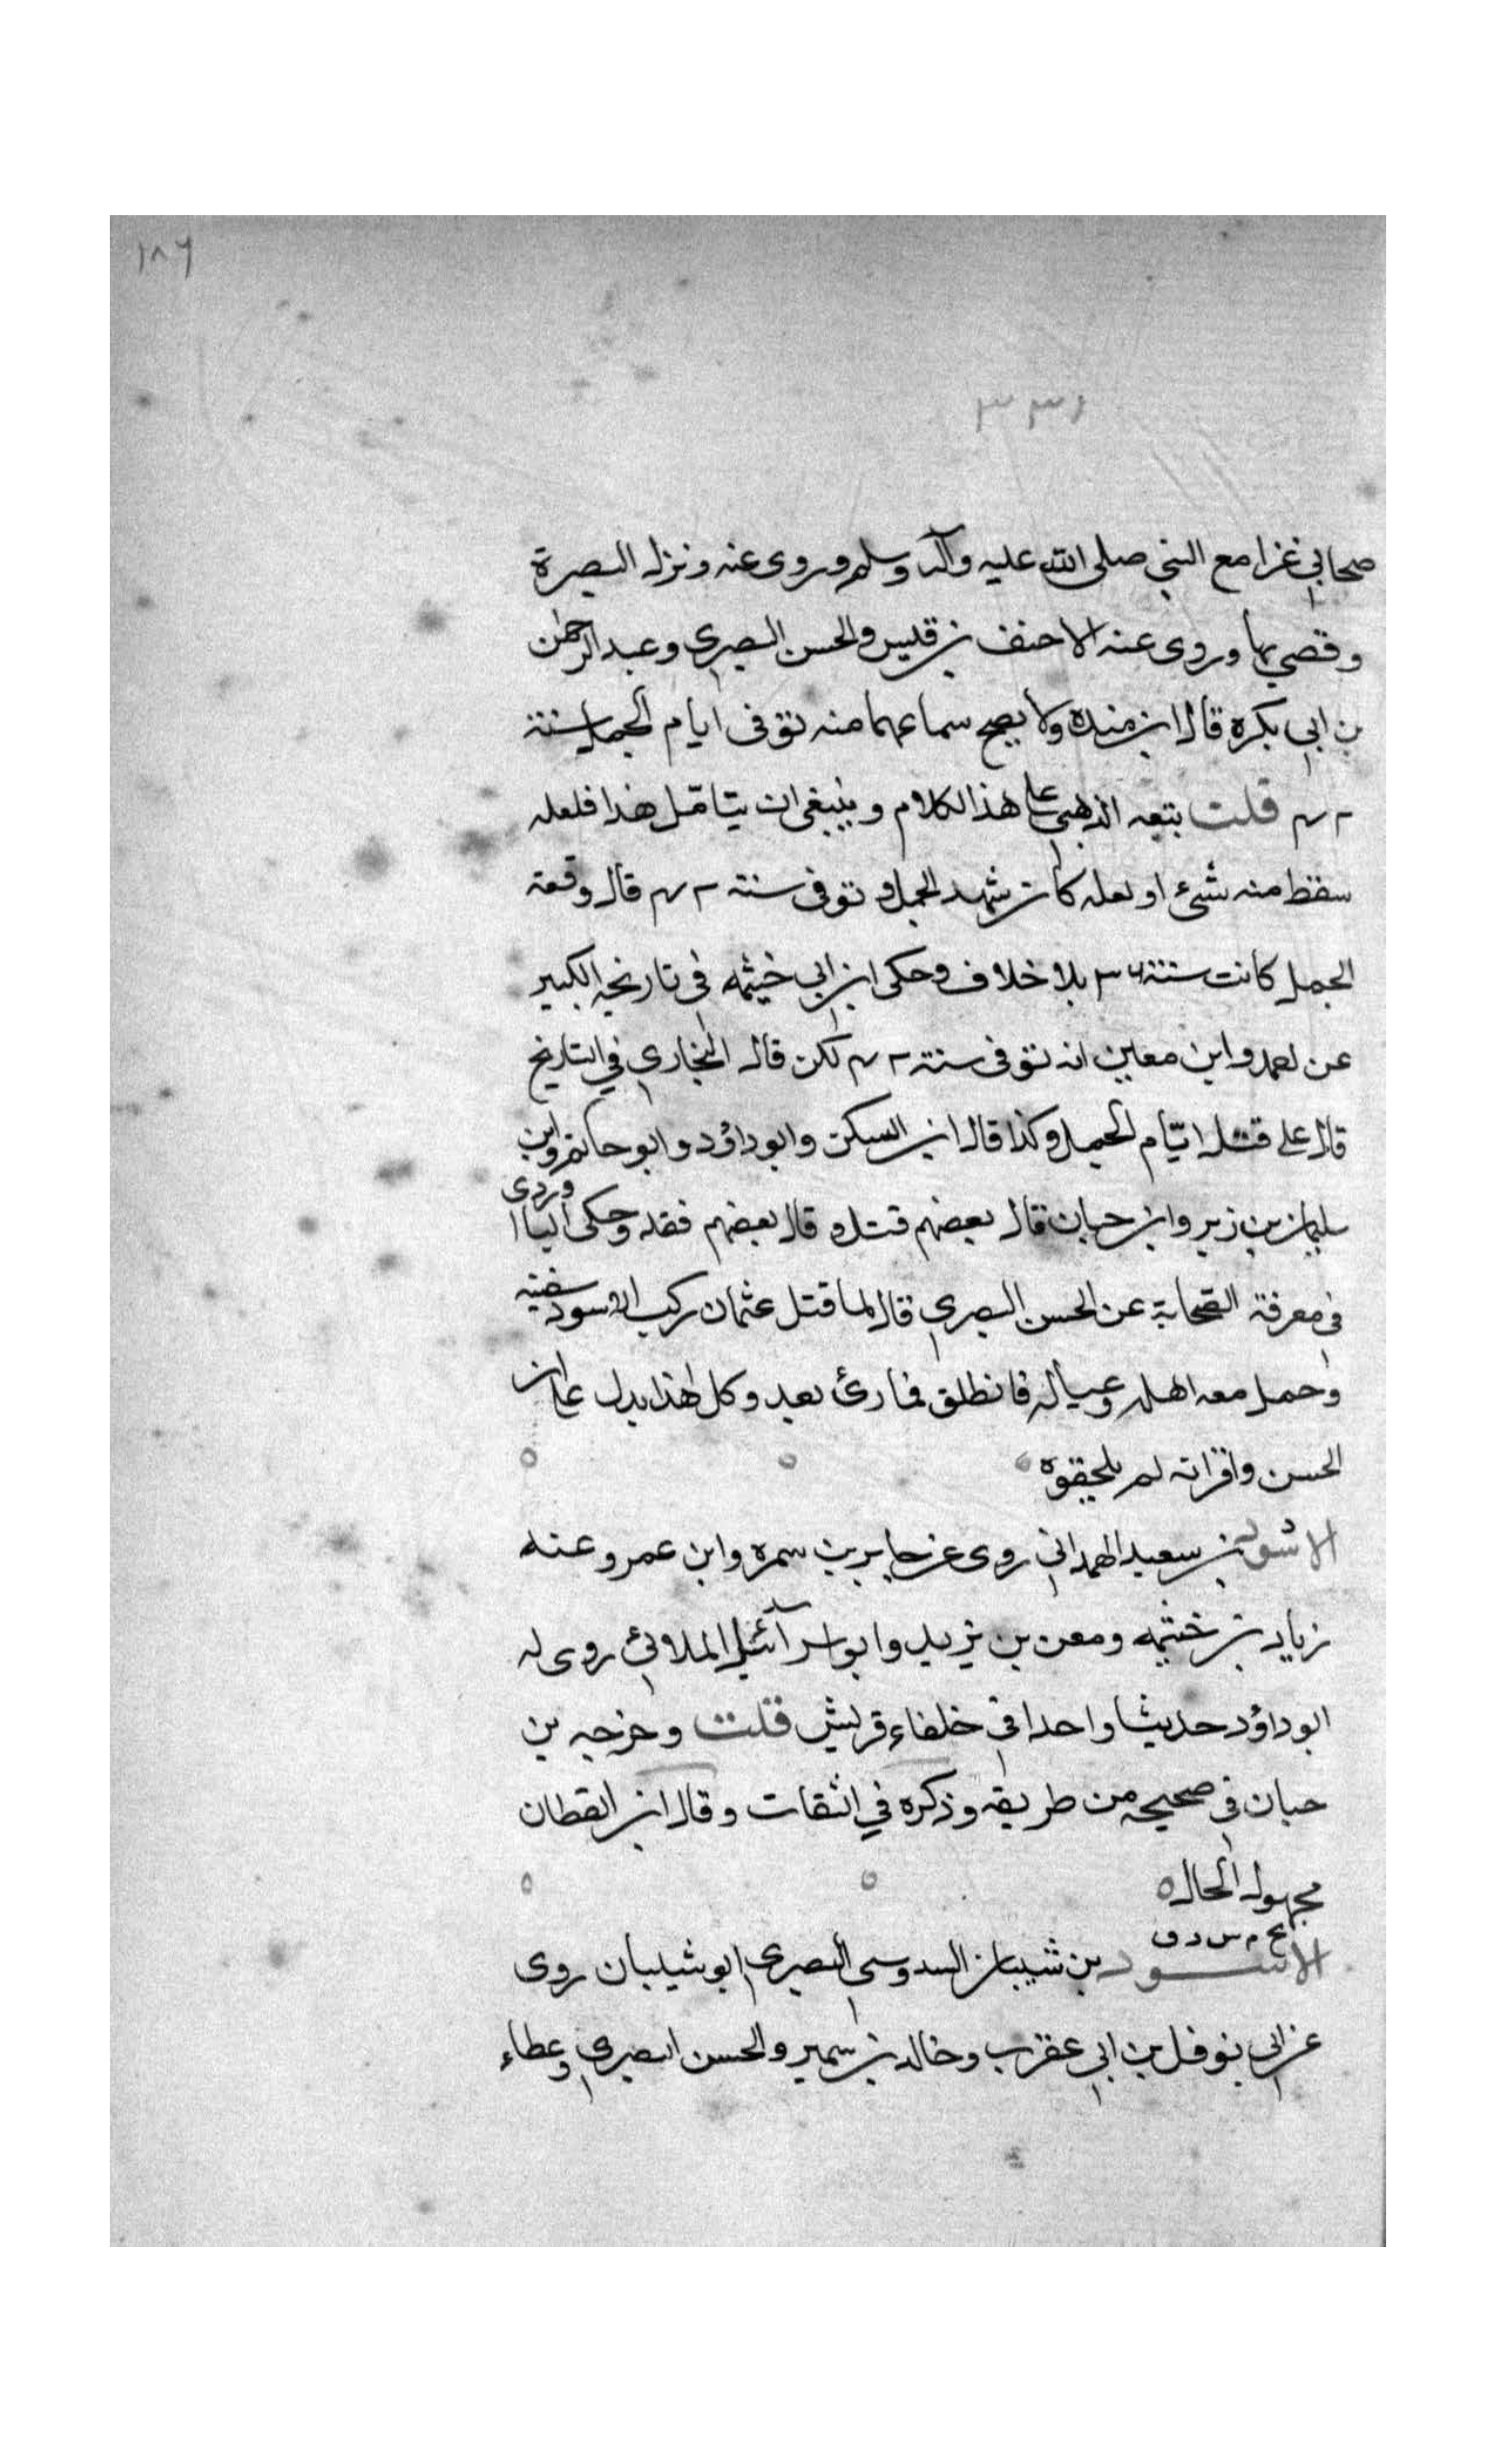 ١٨٦
٣٣١
صحابي غزا مع النبي صلى الله عليه وآله وسلم وروى عنه ونزل البصرة
وقصي بها وروى عنه الاحنف بن قيس والحسن البصري وعبد الرحمن
بن ابي بكرة قال ابن منده ولا يصح سماعهما منه توفى ايام الجمل سنة
٤٢ قلت بتعه الذهبي على هذا الكلام وينبغي ان يتامل هذا فلعله
سقط منه شئ او لعله كان شهد الجمل و توفى سنة ٤٢ قال وقعة
الجمل كانت سنة ٣٦ بلا خلاف وحكى ابن ابي خيثمه في تاريخه الكبير
عن احمد وابن معين انه توفى سنة ٤٢ لكن قال البخاري في التاريخ
قال علي قتل ايّام الجمل وكذا قال ابن السكن وابو داؤد وابو حاتم وابن
سليمان بن زبر وابن حبان قال بعضهم قتل و قال بعضهم فقد وحكى الباوردى
في معرفة الصحابة عن الحسن البصري قال لما قتل عثمان ركب الاسود سفينه
وحمل معه اهله وعياله فانطلق فما رئ بعد وكل هذا يدل على ان
الحسن واقرانه لم يلحقوه
الاسود بن سعيد الهمداني روى عن جابر بن سمره وابن عمر وعنه
زياد بن خثيمه ومعن بن يزيد وابو اسرآئيل الملائي روى له
ابو داؤد حديثا واحدا في خلفاء قريش قلت وخرجه بن
حبان في صحيحه من طريقه وذكره في الثقات وقال ابن القطان
مجهول الحال ه
بخ م س د ق
الاسود بن شيبان السدوسي البصري ابو شيبان روى
عن ابي نوفل بن ابي عقرب وخالد بن سمير والحسن البصري وعطاء